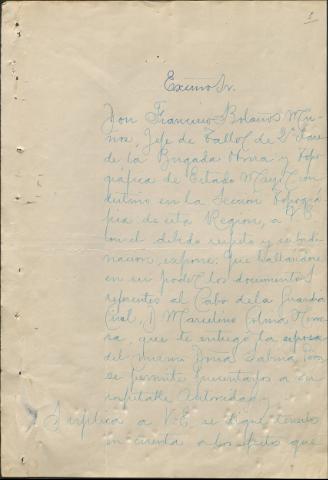 Excmo Sr.
Don Francisco Bolaños Mu-
ñoz, Jefe de Taller de 2ª clase
de la Brigada Obrera y Topo-
gráfica de Estado Mayor con
destino en la Sección Topográ-
fica de esta Región, a V.E.
con el debido respeto y subordi-
nacion, expone: que hallandose
en su poder los documentos
referentes al Cabo de la Guardia
Civil, D Marcelino Colma
que le entregó la esposa
del mismo Doña Sabina
se permite presentarlos a su
respetable Autoridad y
Suplica a V.E. se digne tenerlos
en cuenta a los efectos que